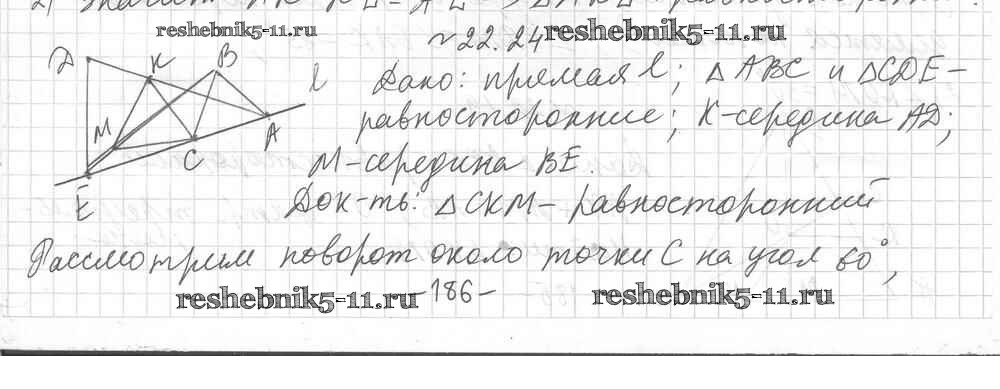 2) Значит
reshebnik5-11.ru
№22.24 reshebnik5-11.ru
Д К В l
Дано: прямая l; △ABC и △CDE –
равносторонние; К-середина АД;
М А
С
М-середина ВЕ.
Е
Док-ть: △СКМ – равносторонний
Рассмотрим поворот около точки С на угол 60°,
reshebnik5-11.ru -186- reshebnik5-11.ru